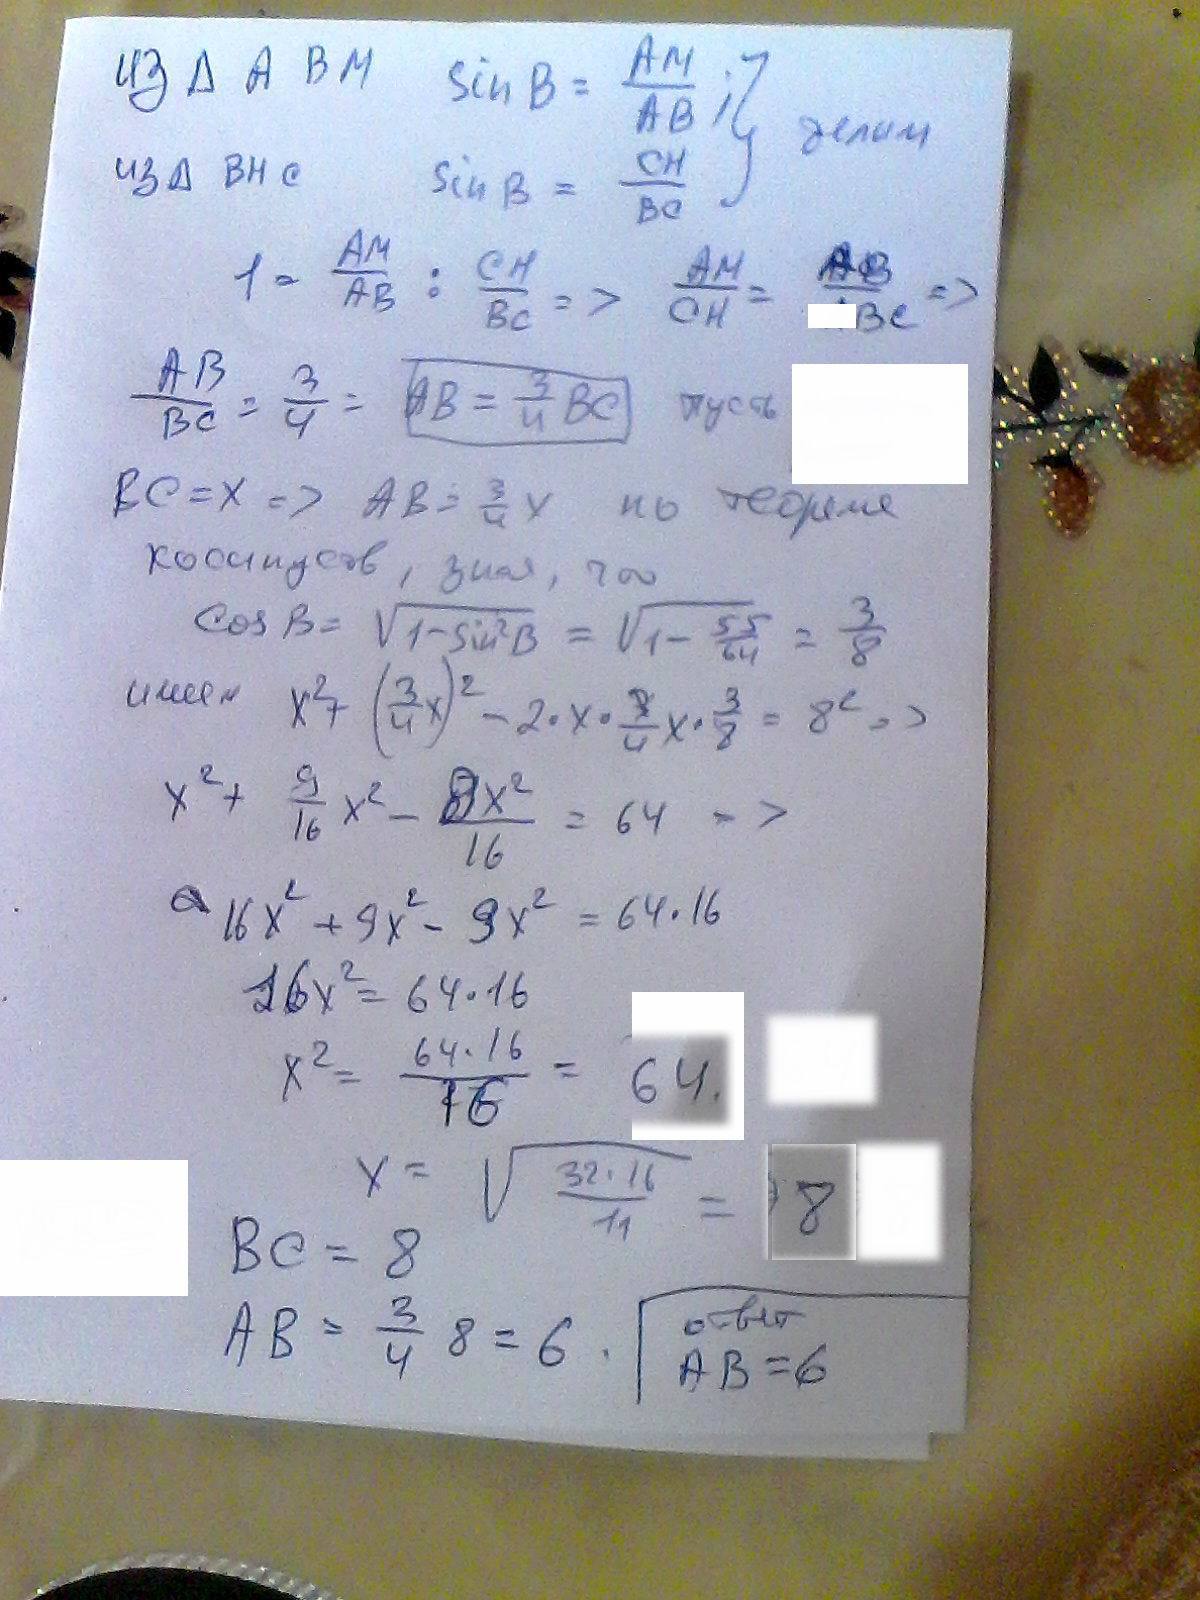 из Δ ABM sin B = AM/AB ; } делим
из Δ BHC sin B = CH/BC
1 = AM/AB : CH/BC => AM/CH = AB/BC =>
AB/BC = 3/4 = AB = 3/4 BC пусть
BC = x => AB = 3/4 x по теореме
косинусов, зная, что
cos B = √(1-sin²B) = √(1 - 55/64) = 3/8
имеем x² + (3/4 x)² - 2·x·3/4 x·3/8 = 8² =>
x² + 9/16 x² - 9x²/16 = 64 =>
16x² + 9x² - 9x² = 64·16
16x² = 64·16
x² = 64·16/16 = 64.
x = √(32·16/11) = 8
BC = 8
AB = 3/4 8 = 6. ответ
AB = 6